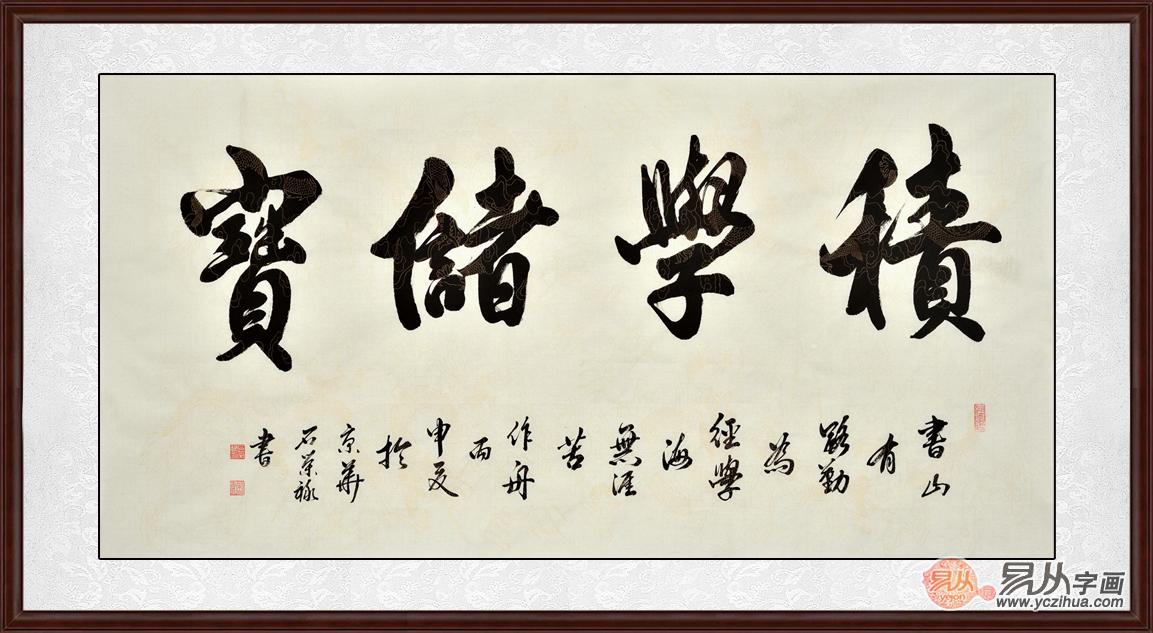 積學儲寶
書山有路勤為徑學海無涯苦作舟丙申夏於京華石榮禄書
易从
yicon
易从字画
www.yczihua.com